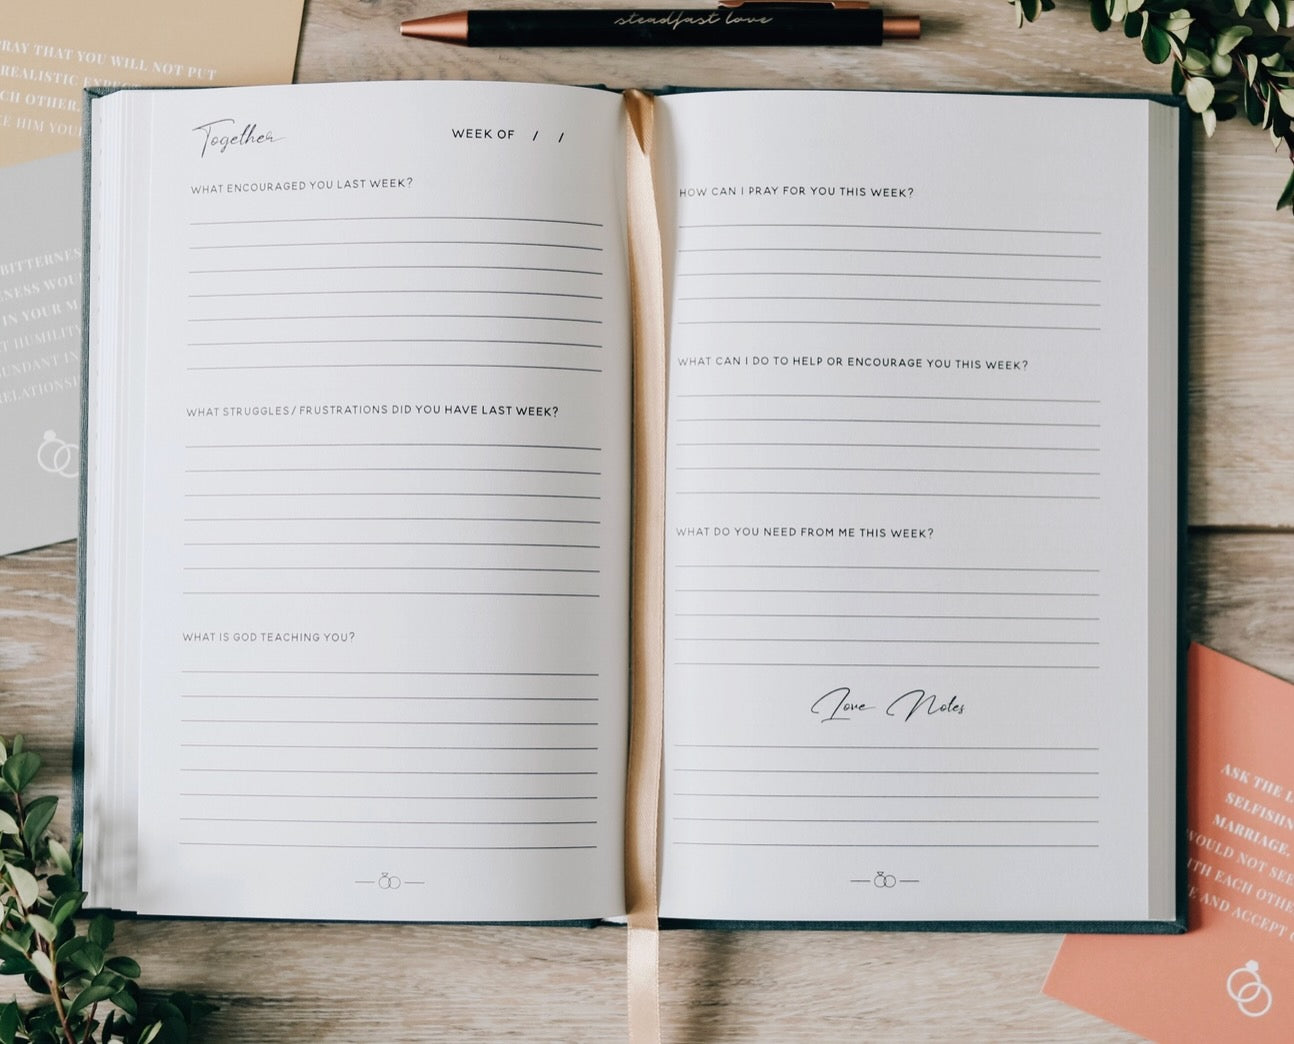 steadfast love
RAY THAT YOU WILL NOT PUT
REALISTIC
CH OTHER.
E HIM YOU
Together
WEEK OF / /
WHAT ENCOURAGED YOU LAST WEEK?
WHAT STRUGGLES/ FRUSTRATIONS DID YOU HAVE LAST WEEK?
WHAT IS GOD TEACHING YOU?
HOW CAN I PRAY FOR YOU THIS WEEK?
WHAT CAN I DO TO HELP OR ENCOURAGE YOU THIS WEEK?
WHAT DO YOU NEED FROM ME THIS WEEK?
Love Notes
BITTERNES
ENESS WOU
IN YOUR M
T HUMILITY
UNDANT IN
RELATIONS
ASK THE L
SELFISHN
MARRIAGE.
WOULD NOT SEE
ITH EACH OTHE
E AND ACCEPT